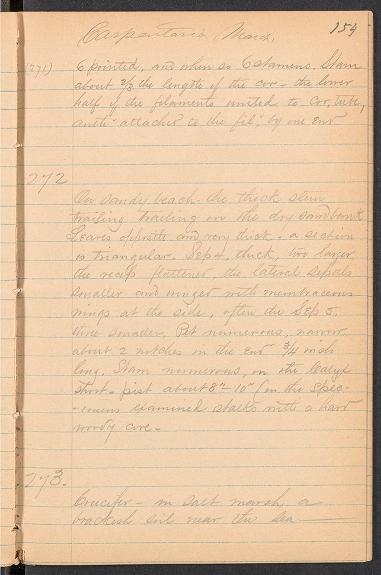 Carpentaria March. 154
(271) 6 pointed, and when so 6 stamens. Stam
about 2/3 the length of the cor - the lower
half of the filaments united to cor. tube,
anth "attached" to the fil; by one end
272
On sandy beach the thick stem
trailing trailing on the dry sand bank
Leaves opposite and very thick - a section
is triangular. Sep 4, thick, two larger
the recep flattened, the lateral sepals
smaller and winged with membraceous
wings at the side, often the Sep 5,
three smaller. Pet numerous, narrow
about 2 notches in the end 3/4 inch
long. Stam numerous, on the Calyx
short - pist about 8 - 10 (in the spec-
-imens examined stalks with a hard
woody core -
273.
Crucifer - in salt marsh, a
brackish soil near the sea